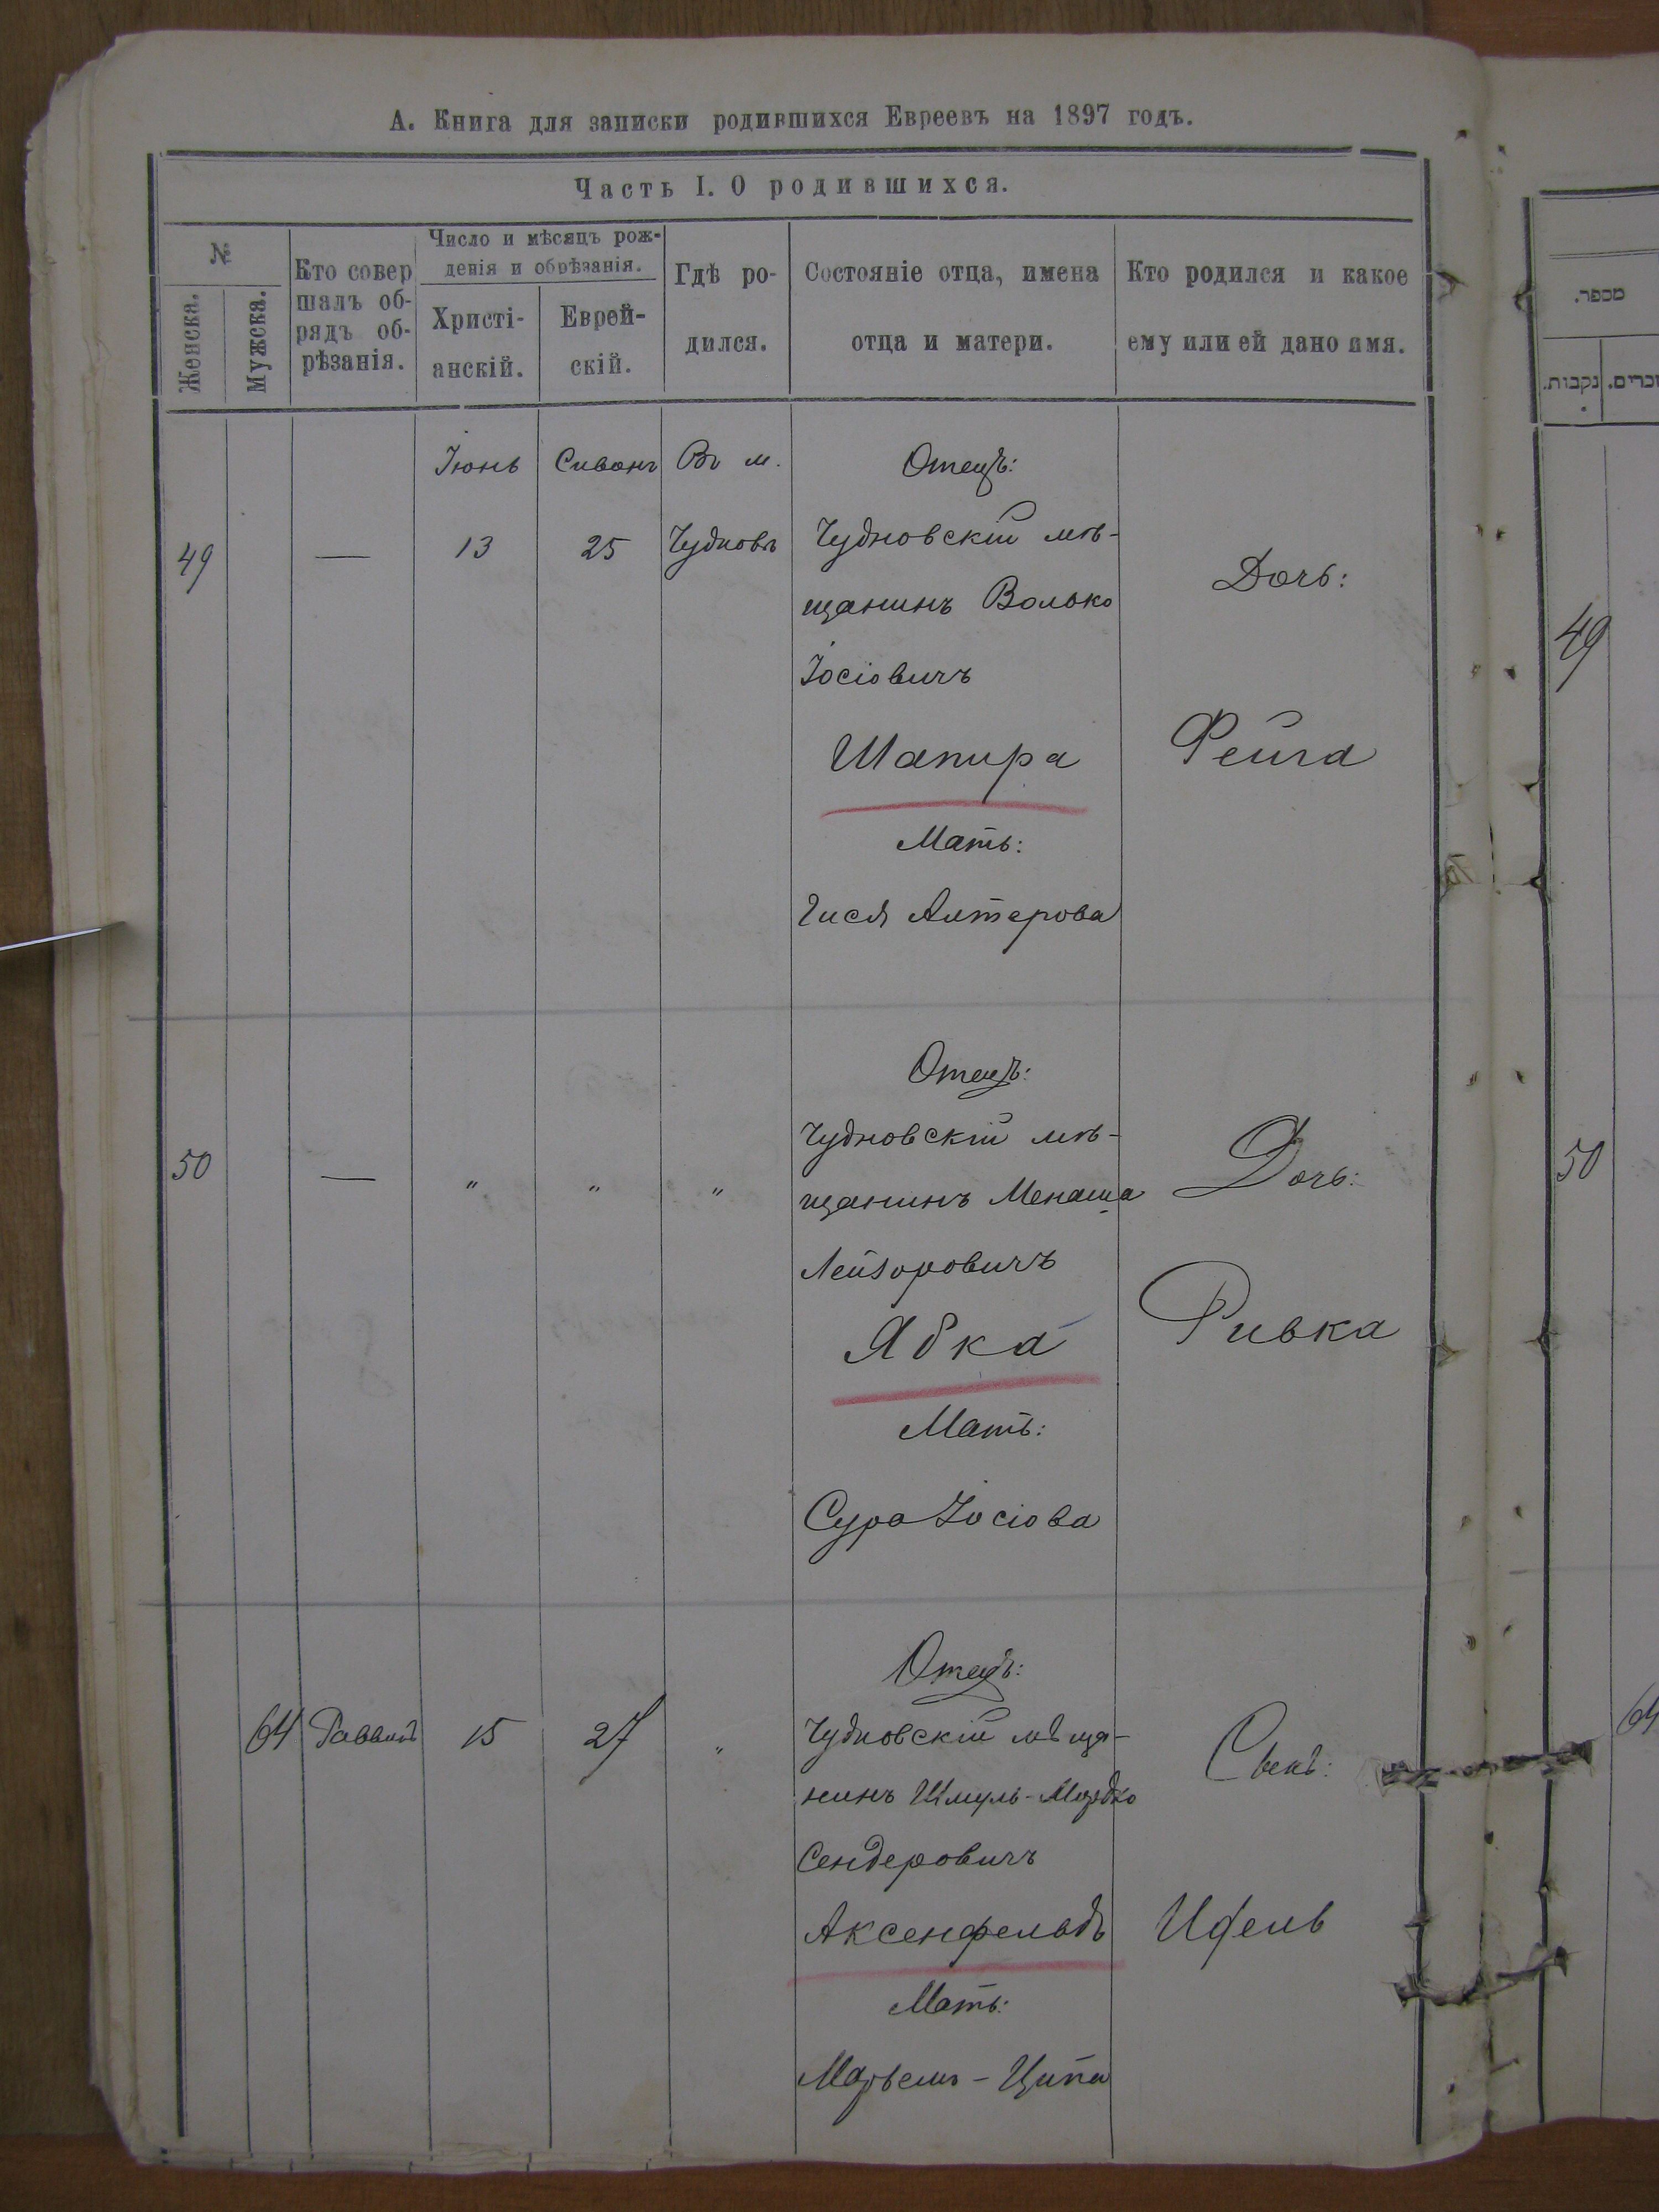 А. Книга для записки родившихся Евреевъ на 1897 годъ.
Часть I. О родившихся.
№
Женска.
Мужска.
Кто совер
шалъ об-
рядъ об-
рѣзанія.
Число и мѣсяцъ рож-
денія и обрѣзанія.
Христі-
анскій.
Еврей-
скій.
Гдѣ ро-
дился.
Состояніе отца, имена
отца и матери.
Кто родился и какое
ему или ей дано имя.
מספר.
זכרים.
נקבות.
49
—
Іюнь
13
Сиванъ
25
Въ м.
Чудновъ
Отецъ:
Чудновскій мѣ-
щанинъ Волько
Іосіовичъ
Шапира
Мать:
Гися Алтерова
Дочь:
Фейга
49
50
—
"
"
"
Отецъ:
Чудновскій мѣ-
щанинъ Менаша
Лейзоровичъ
Ябка
Мать:
Сура Іосіова
Дочь:
Ривка
50
64
Раввинъ
15
27
"
Отецъ:
Чудновскій мѣща-
нинъ Шмуль-Мордко
Сендеровичъ
Аксенфельдъ
Мать:
Ципа
Сынъ:
64